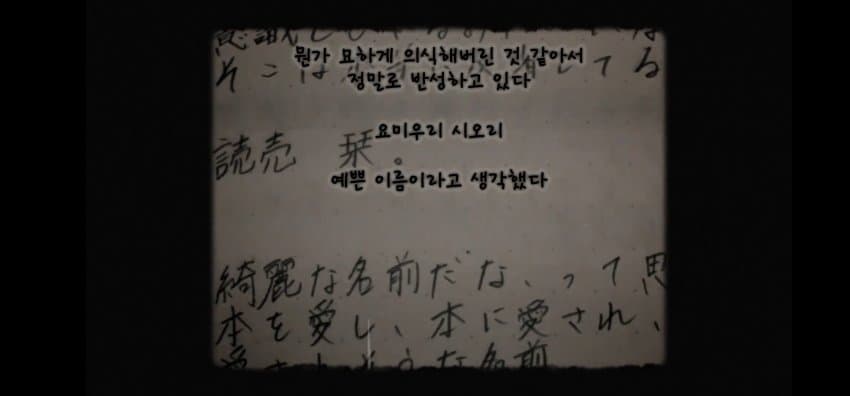 뭔가 묘하게 의식해버린 것 같아서
정말로 반성하고 있다
そこは してる
요미우리 시오리
読売 栞。
예쁜 이름이라고 생각했다
綺麗な名前だな、って思
本を愛し、本に愛され、
な名前